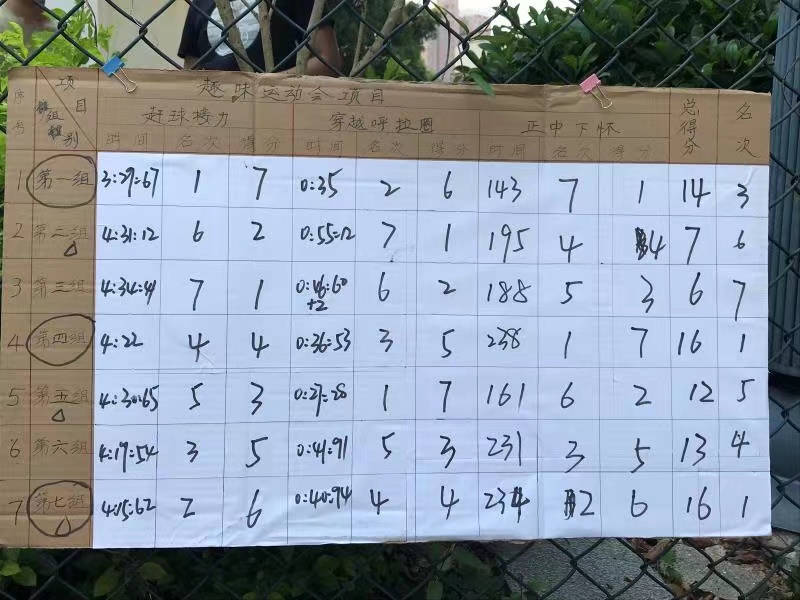 趣味运动会项目
序号 项目 组别 赶球接力 穿越呼拉圈 正中下怀 总得分 名次
时间 名次 得分 时间 名次 得分 时间 名次 得分
1 第一组 3:29:67 1 7 0:35 2 6 143 7 1 14 3
2 第二组 4:31:12 6 2 0:55:12 7 1 195 4 4 7 6
3 第三组 4:34:41 7 1 0:46:60 +2 6 2 188 5 3 6 7
4 第四组 4:22 4 4 0:36:53 3 5 238 1 7 16 1
5 第五组 4:30:65 5 3 0:27:28 1 7 161 6 2 12 5
6 第六组 4:19:54 3 5 0:41:91 5 3 231 3 5 13 4
7 第七组 4:15:62 2 6 0:40:94 4 4 234 2 6 16 1